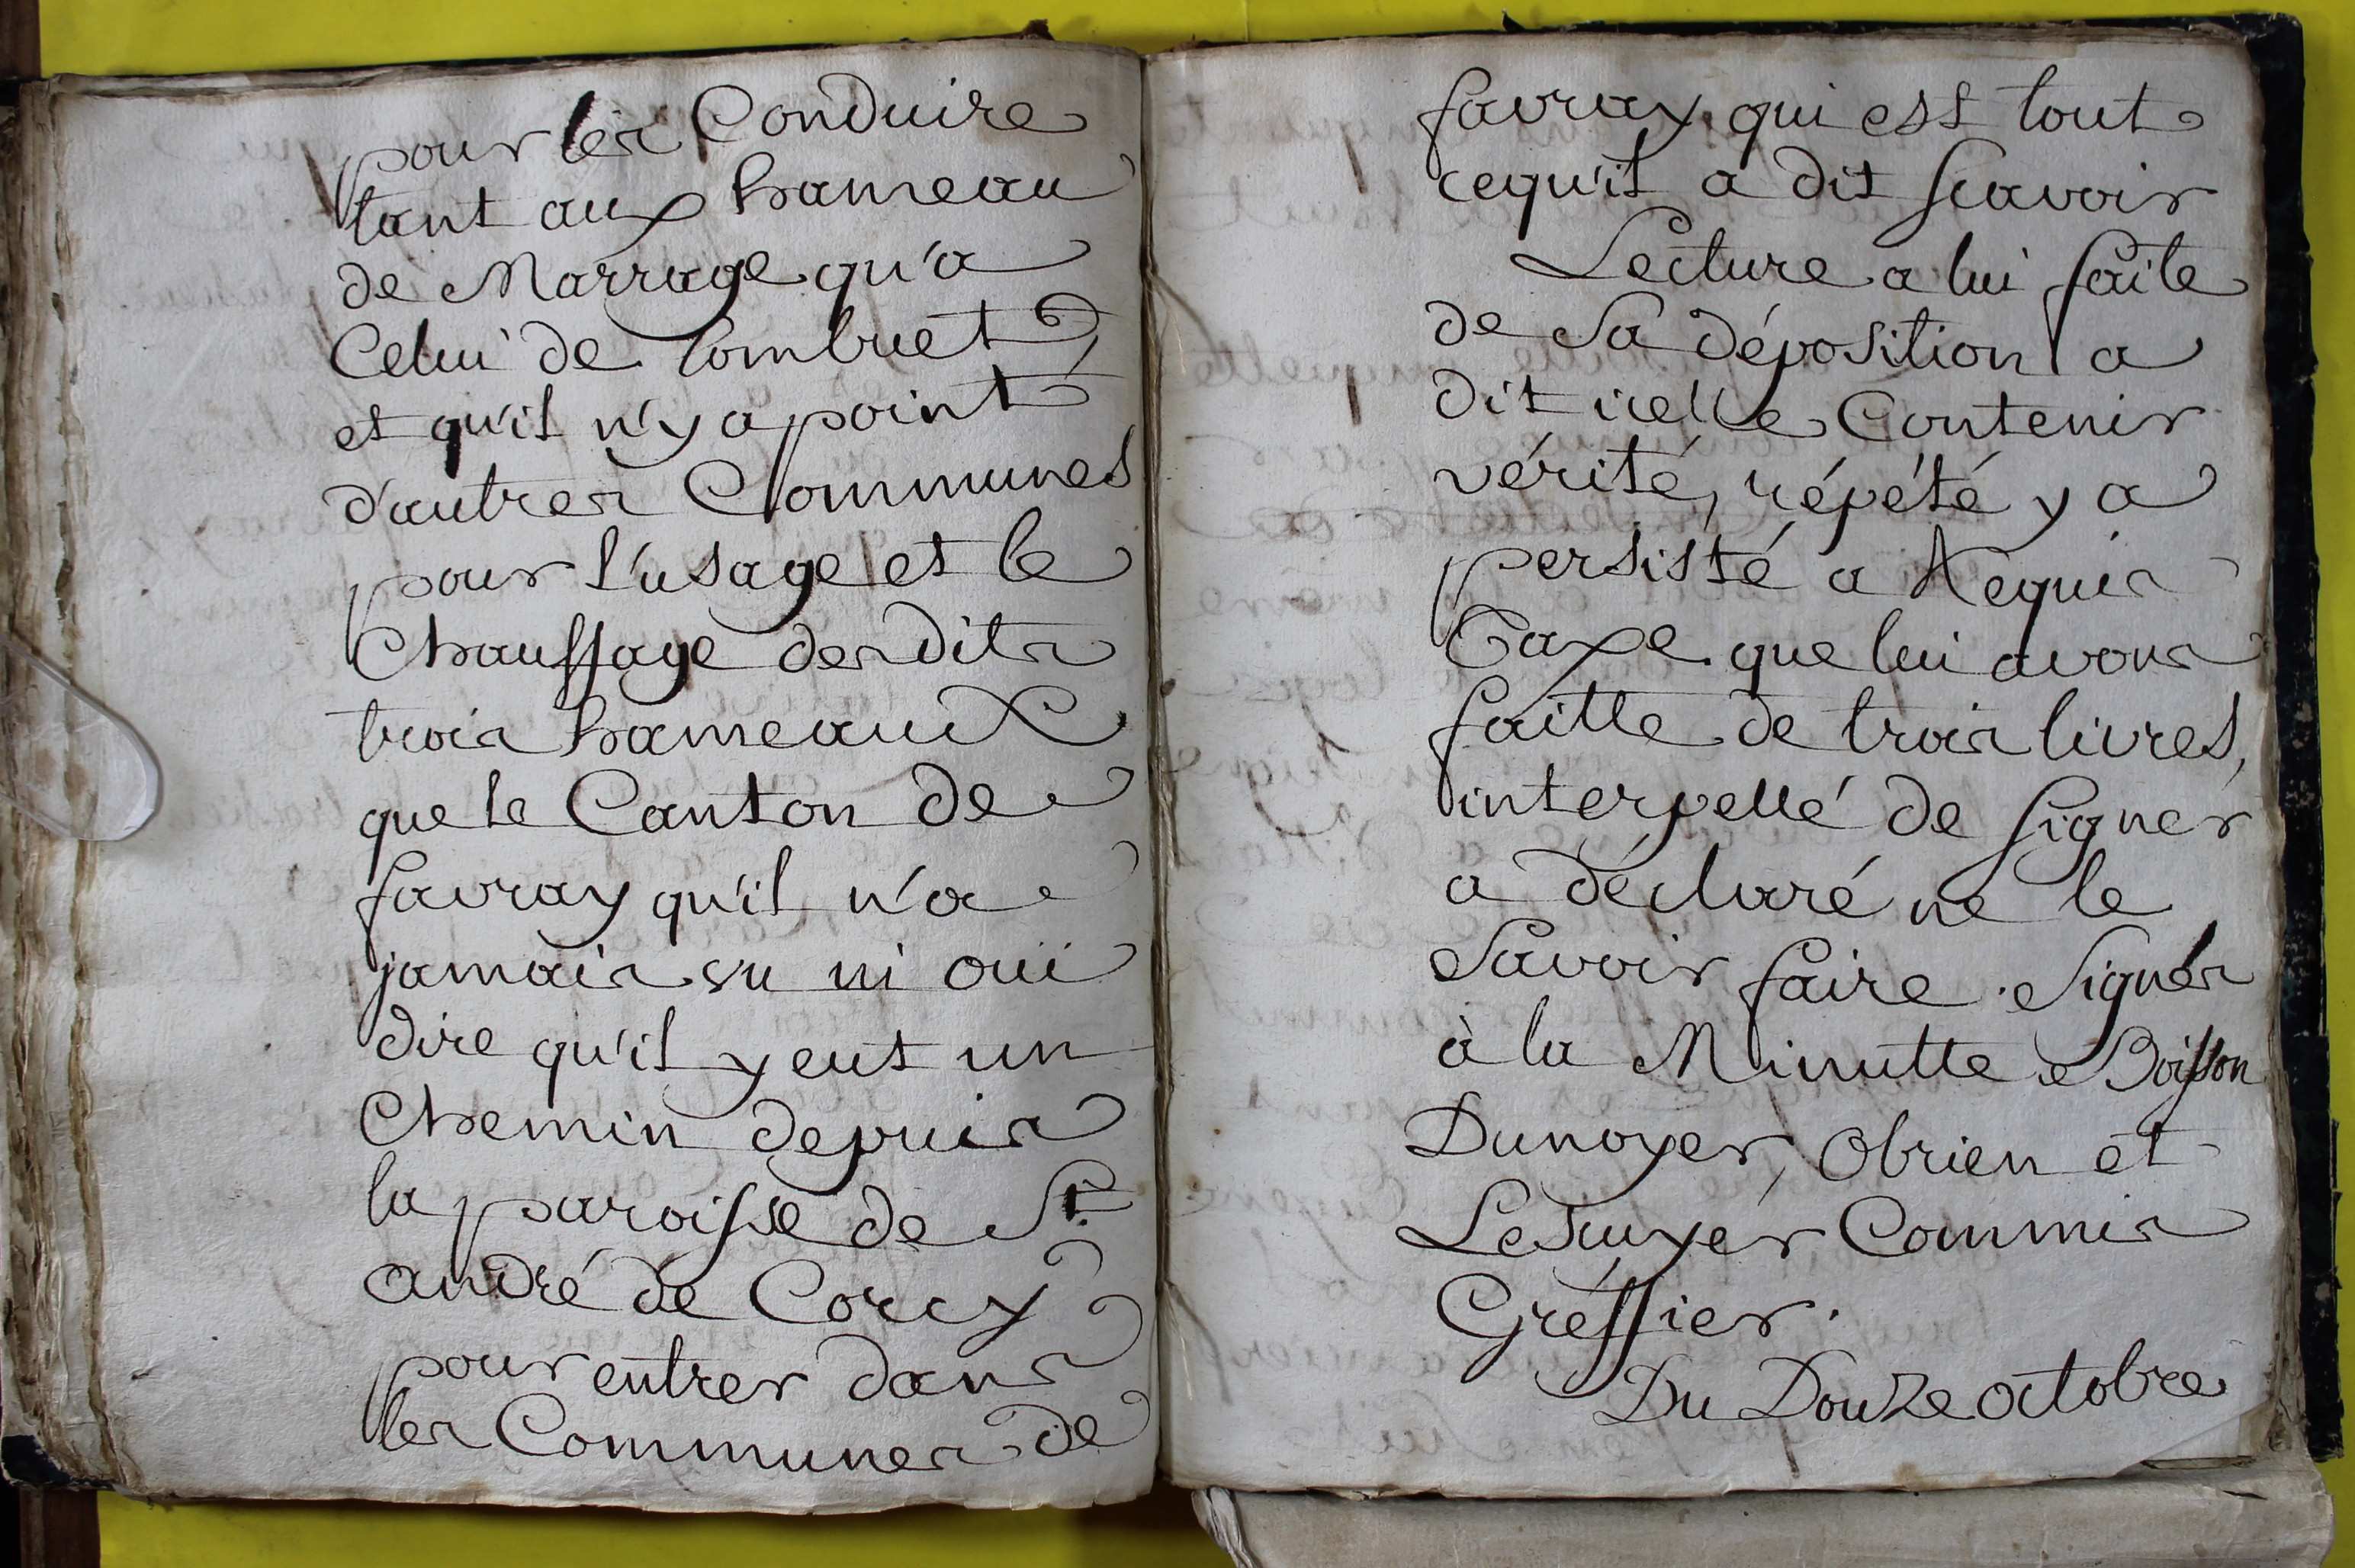 pour les Conduire
tant aux hameau
de Marrage qu'a
Celui de Combuet
et qu'il n'y a point
d'autres Communes
pour l'usage et le
Chauffage desdits
trois hameaux
que le Canton de
favray qu'il n'a
jamais vu ni oui
dire qu'il y eut un
Chemin depuis
la paroisse de St.
andré de Corcy
pour entrer dans
les Communes de
favray, qui est tout
cequ'il a dit scavoir
Lecture a lui faite
de Sa déposition a
dit icelle Contenir
vérité, répété y a
persisté a Requis
Taxe que lui avons
faitte de trois livres,
interpellé de signer
a déclaré ne le
Savoir faire. Signés
à la Minutte Boisson
Dunoyer, Obrien et
LeSuyer Commis
Gréffier.
Du Douze octobre